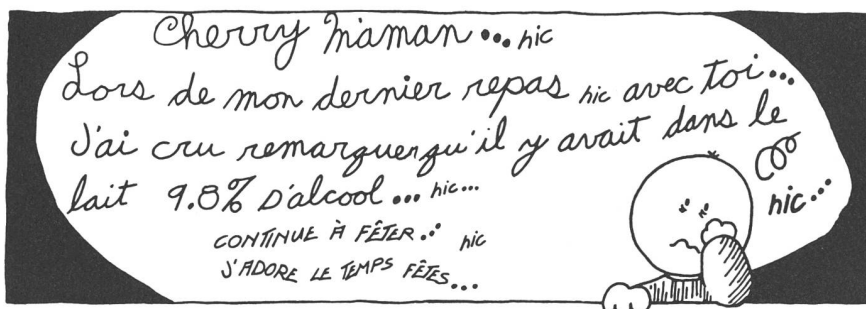 Cherry Maman... hic
Lors de mon dernier repas hic avec toi...
J'ai cru remarquer qu'il y avait dans le
lait 9.8% d'alcool... hic...
hic...
CONTINUE À FÊTER... hic
J'ADORE LE TEMPS FÊTES...